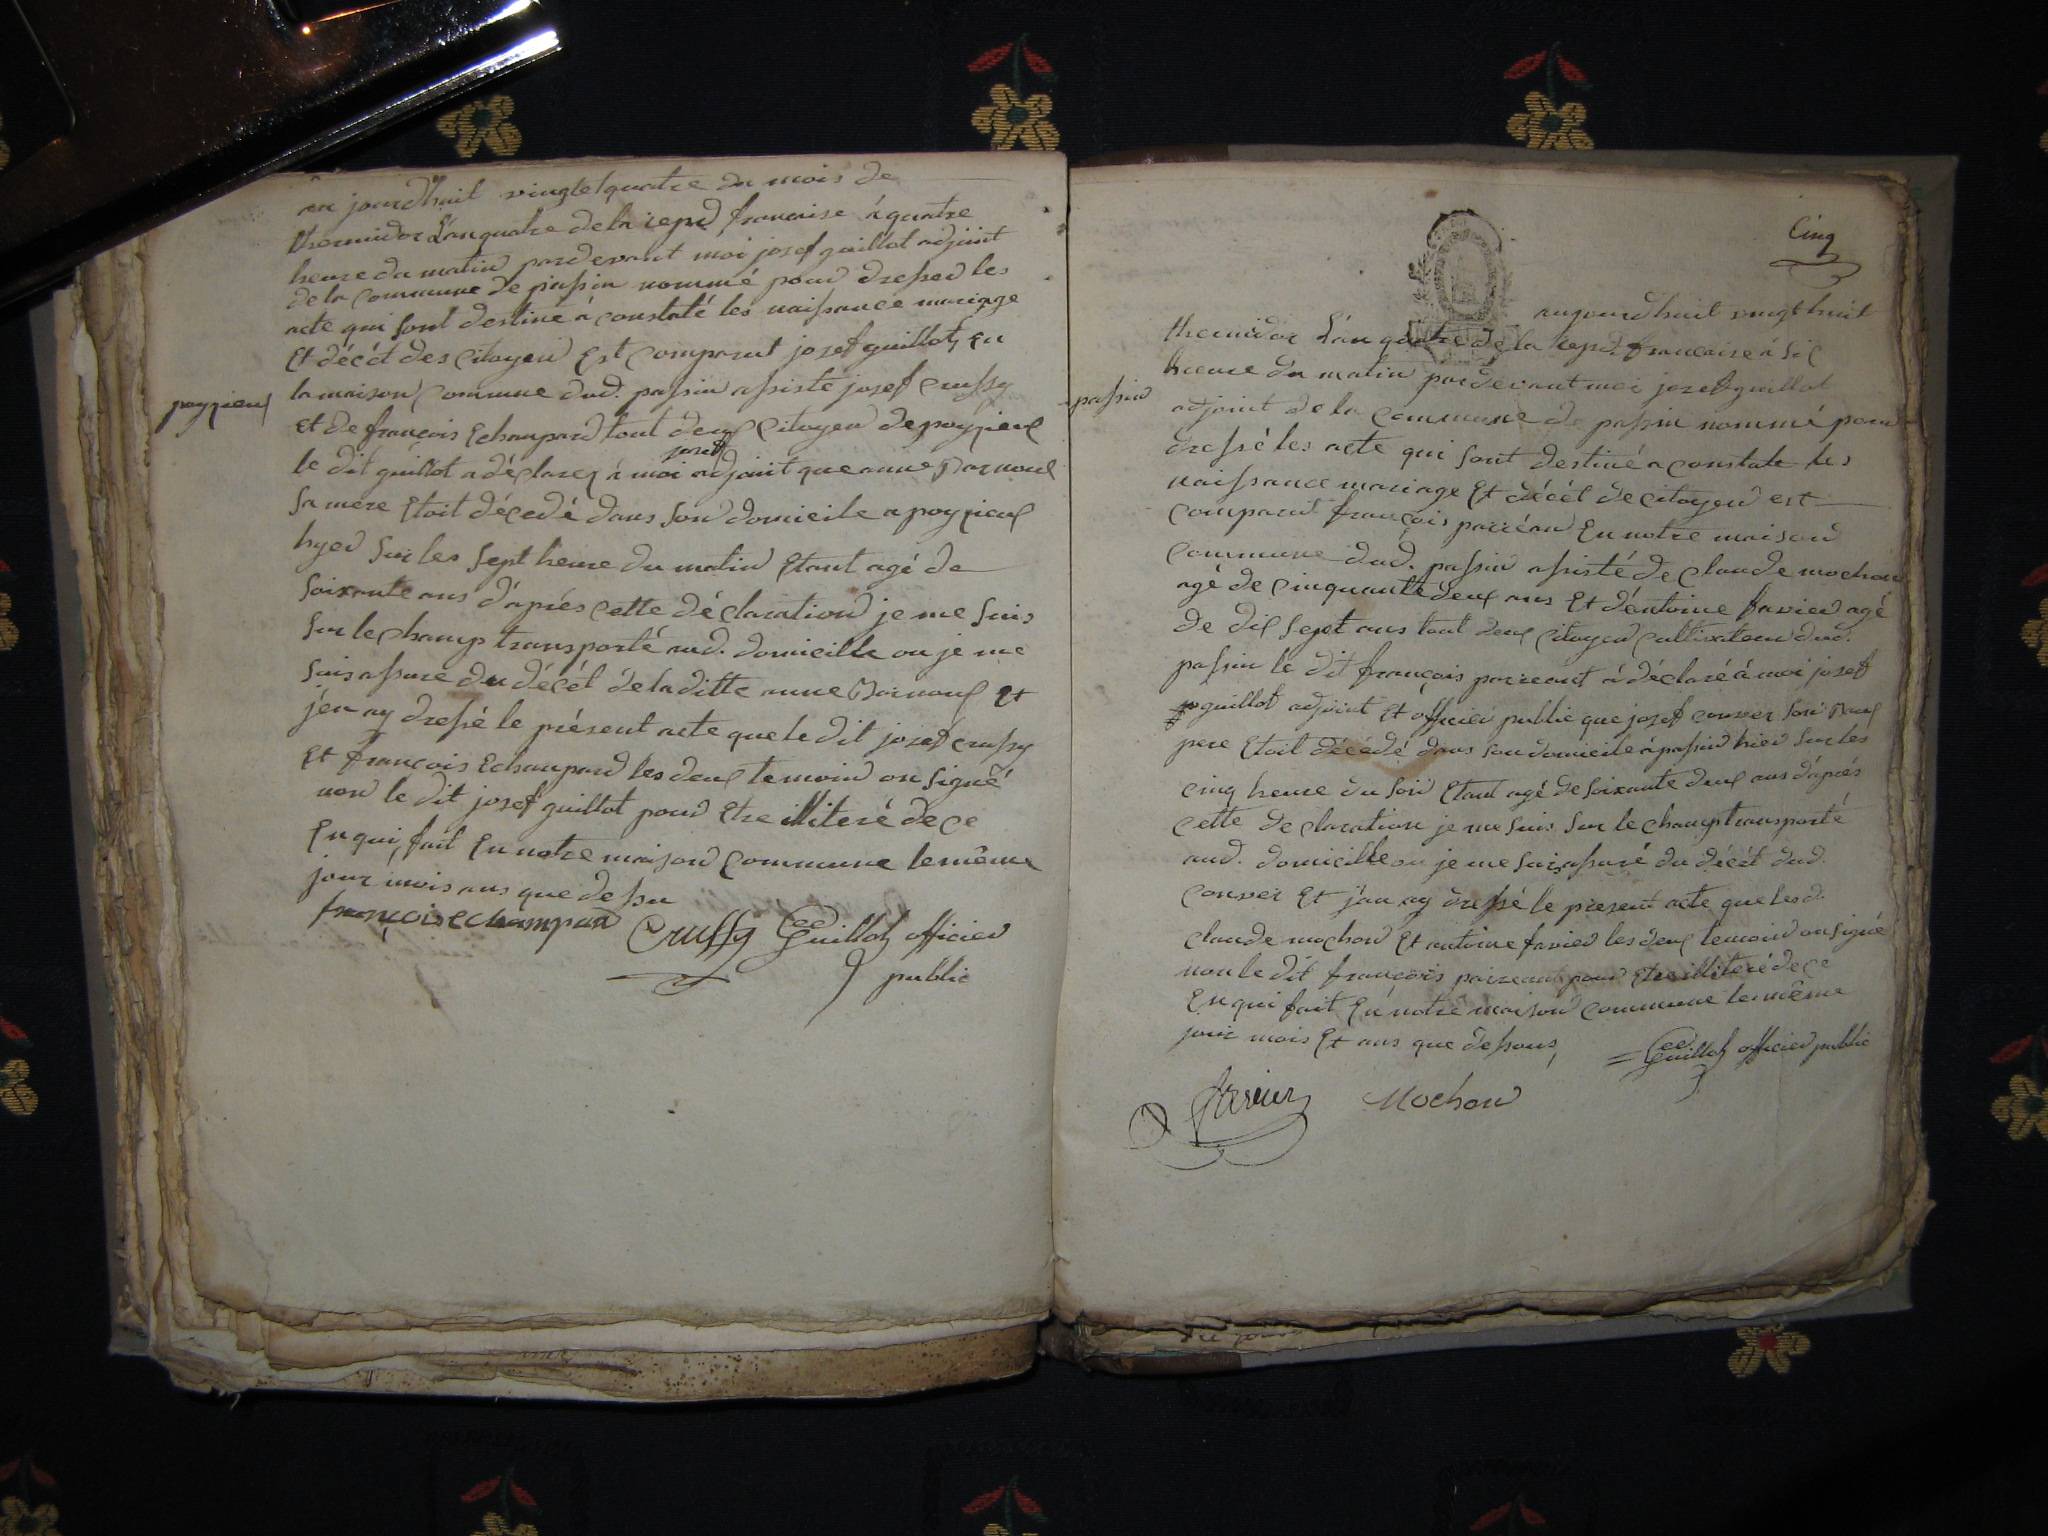 au jourdhuit vingtetquatre du mois de
thermidor L'an quatre de la repu francaise à quatre
heure du matin pardevant moi josef guillot adjoint
de la commune de passin nommé pour dresser les
acte qui sont destiné à constaté les naissance mariage
Et décèt des citoyen Est comparut josef guillot En
la maison commune dud. passin assisté josef crussy
poyzieux
Et de françois Echampard tout deux citoyen de poyzieux
le dit guillot a déclarez à moi josef adjoint que anne
sa mere Etoit décedé dans son domicile a poyzieux
hyer sur les sept heure du matin Etant agé de
soixante ans d'après cette déclaration je me suis
sur le champ transporté aud. domicille ou je me
suis assuré du décèt de la ditte anne Et
j'en ay dressé le présent acte que le dit josef crussy
Et françois Echampard les deux temoin on signé
non le dit josef guillot pour Etre illiteré de ce
En qui, fait En notre maison commune le même
jour mois ans que dessu
françois echampard Crussy Guillot officier
public
Cinq
aujourdhuit vingt huit
thermidor L'an quatre de la repu. francaise à six
heure du matin pardevant moi josef guillot
passin
adjoint de la commune de passin nommé pour
dressé les acte qui sont destiné a constate les
naissance mariage Et décèt de citoyen est
comparut françois parréan En notre maison
commune dud. passin assisté de claude mochon
agé de cinquante deux ans Et d'entoine favier agé
de dix sept ans tout deux citoyen cultivateur dud.
passin le dit françois parreant à déclaré à moi josef
guillot adjoint Et officier public que josef conver son
pere Etoit décédé dans son domicile à passin hier sur les
cinq heure du soir Etant agé de soixante deux ans d'après
cette declaration je me suis sur le champ transporté
aud. domicille ou je me suis assuré du décèt dud.
conver Et j'an ay dressé le present acte que lesd.
claude mochon Et antoine favier les deux temoin on signé
non le dit françois pour Etre illiteré de ce
En qui fait En notre maison commune le même
jour mois Et ans que dessous,
Guillot officier public
favier Mochon